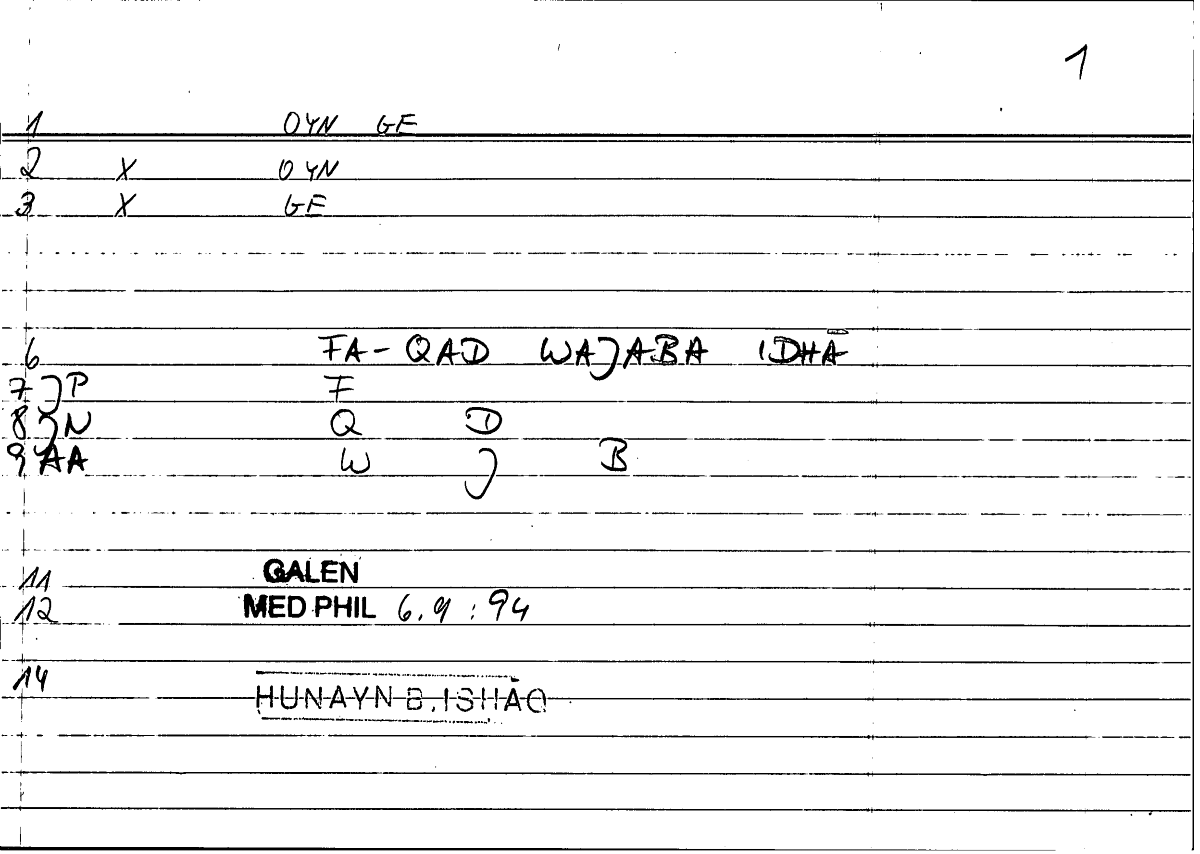 1
1 OYN GE
2 X OYN
3 X GE
6 FA- QAD WAJABA IDHĀ
7 JP F
8 JN Q D
9 AA W J B
11 GALEN
12 MED PHIL 6.9 : 94
14 HUNAYN B. ISHĀQ